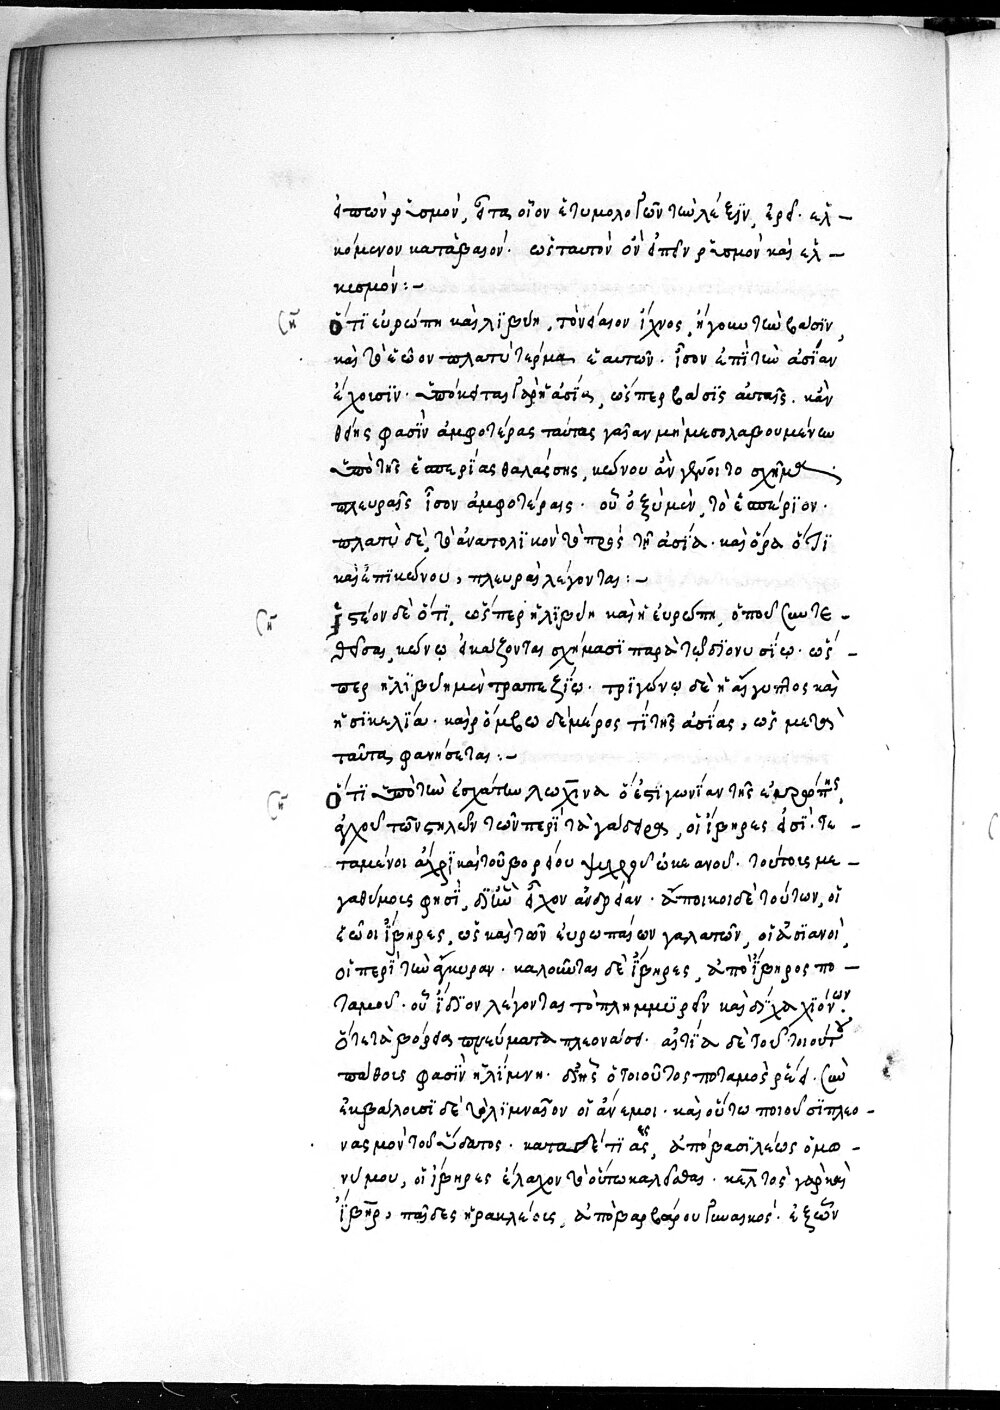 εἰπεῖν ρευσμόν, εἶτα οἷον ἐτυμολογῶν τὴν λέξιν, ἐρεῖ. ἑλ-
κόμενον καταβαῖον. ὡς ταυτὸν ὂν εἰπεῖν ρευσμὸν καὶ ἑλ-
κυσμόν:-
Ὅτι εὐρώπη καὶ λιβύη, τὸν ἴχνος, ἤγουν τὴν βάσιν,
καὶ τὸ ἑῷον πλατὺ τέρμα ἑαυτῶν. ἴσον ἐπὶ τὴν ἀσίαν
ἔχουσιν. ὑπόκειται γὰρ ἡ ἀσία, ὥσπερ βάσις αὐταῖς. κἀν-
φασὶν ἀμφοτέρας ταύτας γαῖαν μὴ μεσολαβουμένην
ὑπὸ τῆς ἑσπερίας θαλάσσης, κώνου ἂν γένοιτο σχῆμα
πλευραῖς ἴσον ἀμφοτέραις. οὗ ὀξὺ μὲν, τὸ ἑσπέριον.
πλατὺ δὲ, τὸ ἀνατολικὸν τὸ πρὸς τῇ ἀσίᾳ. καὶ ὅρα ὅτι
καὶ ἐπὶ κώνου, πλευραὶ λέγονται:-
Ἰστέον δὲ ὅτι, ὥσπερ ἡ λιβύη καὶ ἡ εὐρώπη, ὁποῦ συντε-
θεῖσαι, κώνῳ εἰκάζονται σχήμασι παρὰ τῷ διονυσίῳ. ὥσ-
περ ἡ λιβύη μὲν τραπεζίῳ. τριγώνῳ δὲ ἡ αἴγυπτος καὶ
ἡ σικελία. καὶ ρόμβῳ δὲ μέρος τι τῆς ἀσίας, ὡς μετὰ
ταῦτα φανήσεται:-
Ὅτι ὑπὸ τὴν ἐσχάτην γλωχῖνα ὅ ἐστι γωνίαν τῆς εὐρώπης,
ἀγχοῦ τῶν στηλῶν τῶν περὶ τὰ γάδειρα, οἱ ἴβηρες εἰσί. τε-
ταμένοι ἄχρι καὶ τοῦ βορείου ψυχροῦ ὠκεανοῦ. τούτοις με-
γαθύμοις φησὶ, δι' ἣν εἶχον ἀνδρείαν. ἄποικοι δὲ τούτων, οἱ
ἑῷοι ἴβηρες, ὡς καὶ τῶν εὐρωπαίων γαλατῶν, οἱ ἀσιανοὶ,
οἱ περὶ τὴν ἄγκυραν. καλοῦνται δὲ ἴβηρες, ἀπὸ ἴβηρος πο-
ταμοῦ. οὗ ἴδιον λέγονται τὸ πλημμυρεῖν καὶ δίχα χιόνων.
ὅτε τὰ βόρεια πνεύματα πλεονάσει. αἰτία δὲ τοῦ τοιούτου
πάθους φασὶν ἡ λίμνη. δι' ἧς ὁ τοιοῦτος ποταμὸς ρέει. ἣν
ἐκβάλουσι δὲ τὸ λιμναῖον οἱ ἄνεμοι. καὶ οὕτω ποιοῦσι πλεο-
νασμὸν τοῦ ὕδατος. κατὰ δέ τινας, ἀπὸ βασιλέως ὁμω-
νύμου, οἱ ἴβηρες ἔλαχον τὸ οὕτω καλεῖσθαι. κελτὸς γὰρ καὶ
ἴβηρ, παῖδες ἡρακλέους, ἀπὸ βαρβάρου γυναικός. ἐξ ὧν